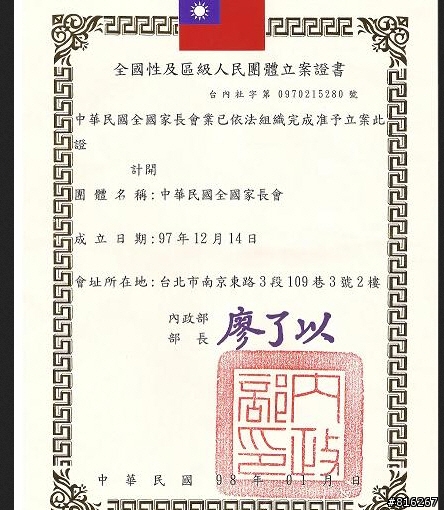 全國性及區級人民團體立案證書
台內社字第 0970215280 號
中華民國全國家長會業已依法組織完成准予立案此
證
計開
團體名稱:中華民國全國家長會
成立日期:97年12月14日
會址所在地:台北市南京東路3段109巷3號2樓
內政部
部長 廖了以
內政部印
中華民國 98 年 01 月 日
#816267